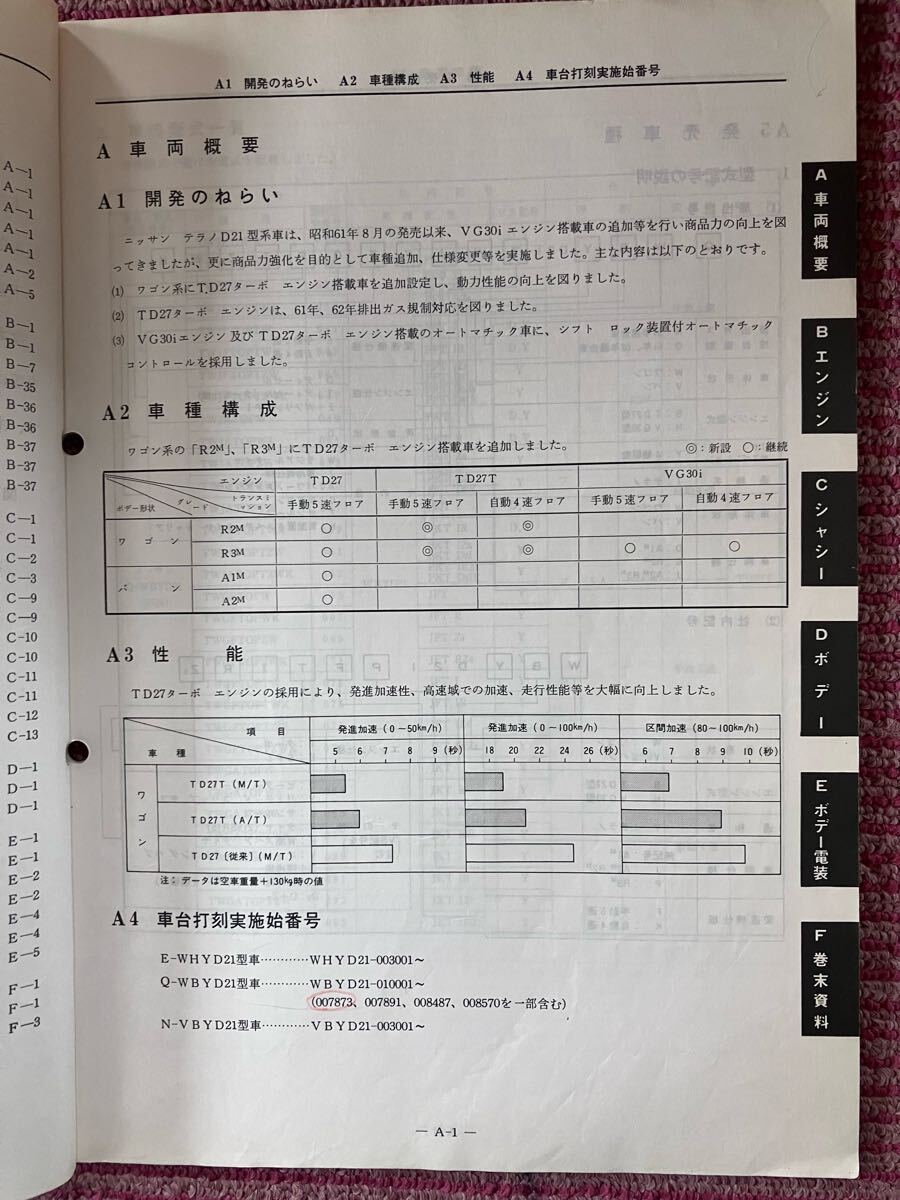 A1 開発のねらい A2 車種構成 A3 性能 A4 車台打刻実施始番号
A 車両概要
A1 開発のねらい
ニッサン テラノD21型系車は、昭和61年8月の発売以来、VG30iエンジン搭載車の追加等を行い商品力の向上を図
ってきましたが、更に商品力強化を目的として車種追加、仕様変更等を実施しました。主な内容は以下のとおりです。
(1) ワゴン系にT,D27ターボ エンジン搭載車を追加設定し、動力性能の向上を図りました。
(2) TD27ターボ エンジンは、61年、62年排出ガス規制対応を図りました。
(3) VG30iエンジン及びTD27ターボ エンジン搭載のオートマチック車に、シフト ロック装置付オートマチック
コントロールを採用しました。
A2 車種構成
ワゴン系の「R2M」、「R3M」にTD27ターボ エンジン搭載車を追加しました。 ◎:新設 ○:継続
エンジン TD27 TD27T VG30i
ボデー形状 グレード トランスミッション 手動5速フロア 手動5速フロア 自動4速フロア 手動5速フロア 自動4速フロア
ワゴン R2M ○ ◎ ◎
R3M ○ ◎ ◎ ○ ○
バン A1M ○
A2M ○
A3 性能
TD27ターボ エンジンの採用により、発進加速性、高速域での加速、走行性能等を大幅に向上しました。
項目 発進加速(0~50km/h) 発進加速(0~100km/h) 区間加速(80~100km/h)
車種 5 6 7 8 9(秒) 18 20 22 24 26(秒) 6 7 8 9 10(秒)
ワゴン TD27T(M/T)
TD27T(A/T)
TD27〔従来〕(M/T)
注:データは空車重量+130kg時の値
A4 車台打刻実施始番号
E-WHYD21型車…………WHYD21-003001~
Q-WBYD21型車…………WBYD21-010001~
(007873、007891、008487、008570を一部含む)
N-VBYD21型車…………VBYD21-003001~
— A-1 —
A 車両概要
B エンジン
C シャシー
D ボデー
E ボデー電装
F 巻末資料
A-1
A-1
A-1
A-1
A-1
A-2
A-5
B-1
B-1
B-7
B-35
B-36
B-36
B-37
B-37
B-37
C-1
C-1
C-2
C-3
C-9
C-9
C-10
C-10
C-11
C-11
C-12
C-13
D-1
D-1
D-1
E-1
E-1
E-2
E-2
E-4
E-4
E-5
F-1
F-1
F-3